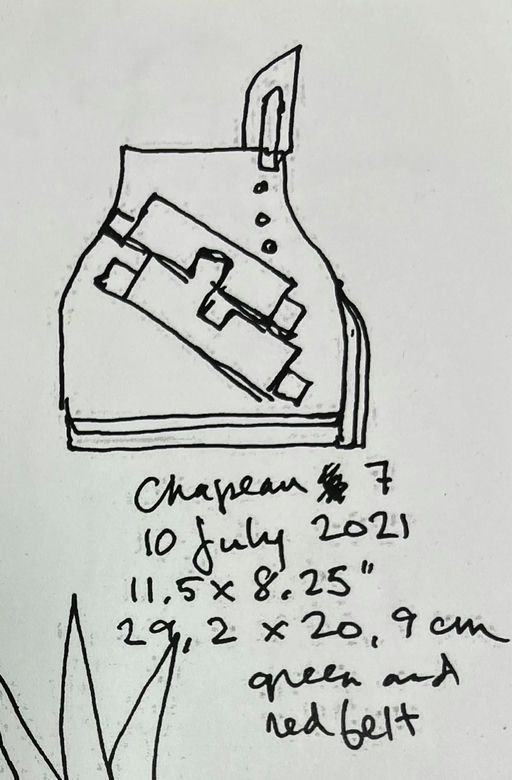 Chapeau 7
10 July 2021
11.5 x 8.25"
29,2 x 20,9 cm
green and
red belt